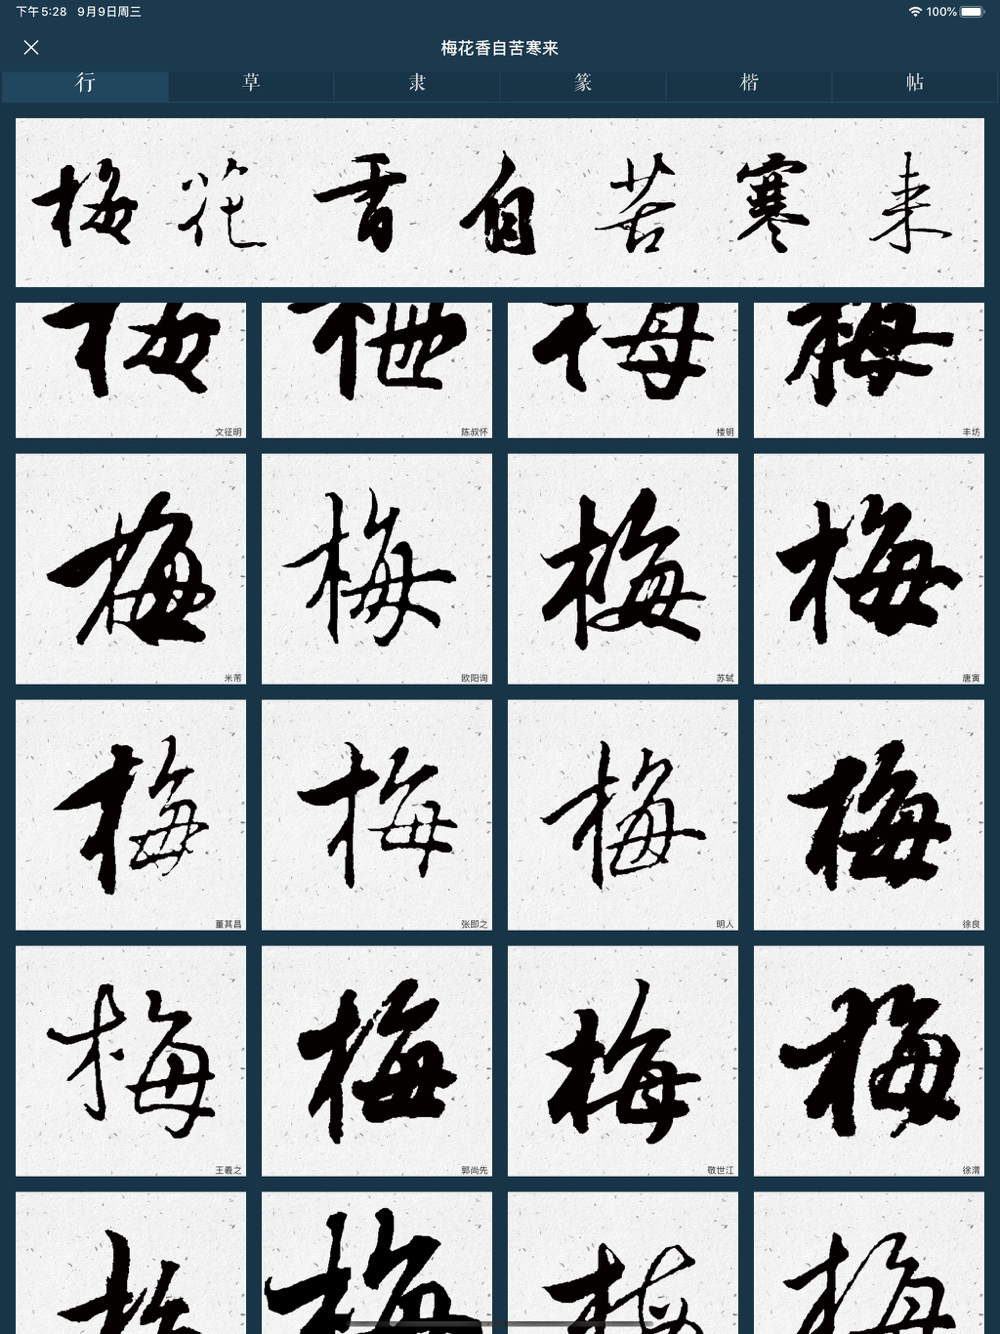 下午5:28 9月9日周三 100%
梅花香自苦寒来
行 草 隶 篆 楷 帖
梅花香自苦寒来
梅 梅 梅 梅
文征明 陈叔怀 楼钥 丰坊
梅 梅 梅 梅
米芾 欧阳询 苏轼 唐寅
梅 梅 梅 梅
董其昌 张即之 明人 徐良
梅 梅 梅 梅
王羲之 郭尚先 敬世江 徐渭
梅 梅 梅 梅